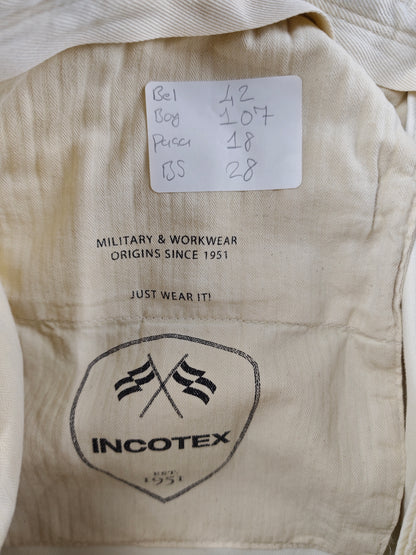 Bel 42
Boy 107
paça 18
BS 28
MILITARY & WORKWEAR
ORIGINS SINCE 1951
JUST WEAR IT!
INCOTEX
EST.
1951